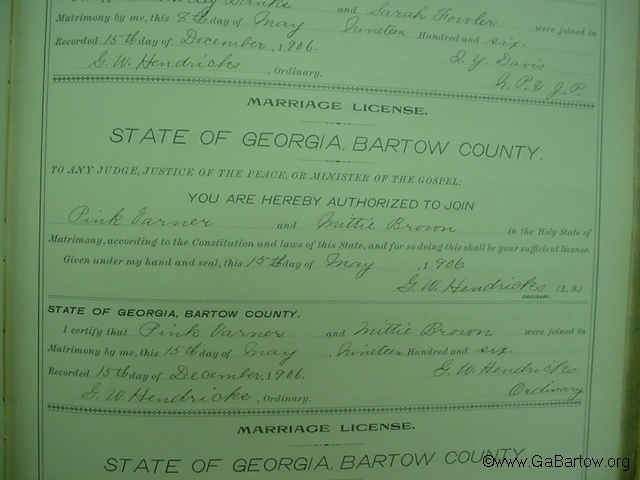 Banks and Sarah Fowler were joined in
Matrimony by me, this 8th day of May Nineteen Hundred and six.
Recorded 15th day of December, 1906. J. Y. Davis
G. W. Hendricks, Ordinary. N. P. & J. P.
MARRIAGE LICENSE.
STATE OF GEORGIA, BARTOW COUNTY.
TO ANY JUDGE, JUSTICE OF THE PEACE, OR MINISTER OF THE GOSPEL:
YOU ARE HEREBY AUTHORIZED TO JOIN
Pink Varner and Mittie Brown in the Holy State of
Matrimony, according to the Constitution and laws of this State, and for so doing this shall be your sufficient license.
Given under my hand and seal, this 15th day of May, 1906
G. W. Hendricks (L. S.)
ORDINARY.
STATE OF GEORGIA, BARTOW COUNTY.
I certify that Pink Varner and Mittie Brown were joined in
Matrimony by me, this 15th day of May Nineteen Hundred and six.
Recorded 15th day of December, 1906. G. W. Hendricks
G. W. Hendricks, Ordinary. Ordinary
MARRIAGE LICENSE.
STATE OF GEORGIA, BARTOW COUNTY.
©www.GaBartow.org